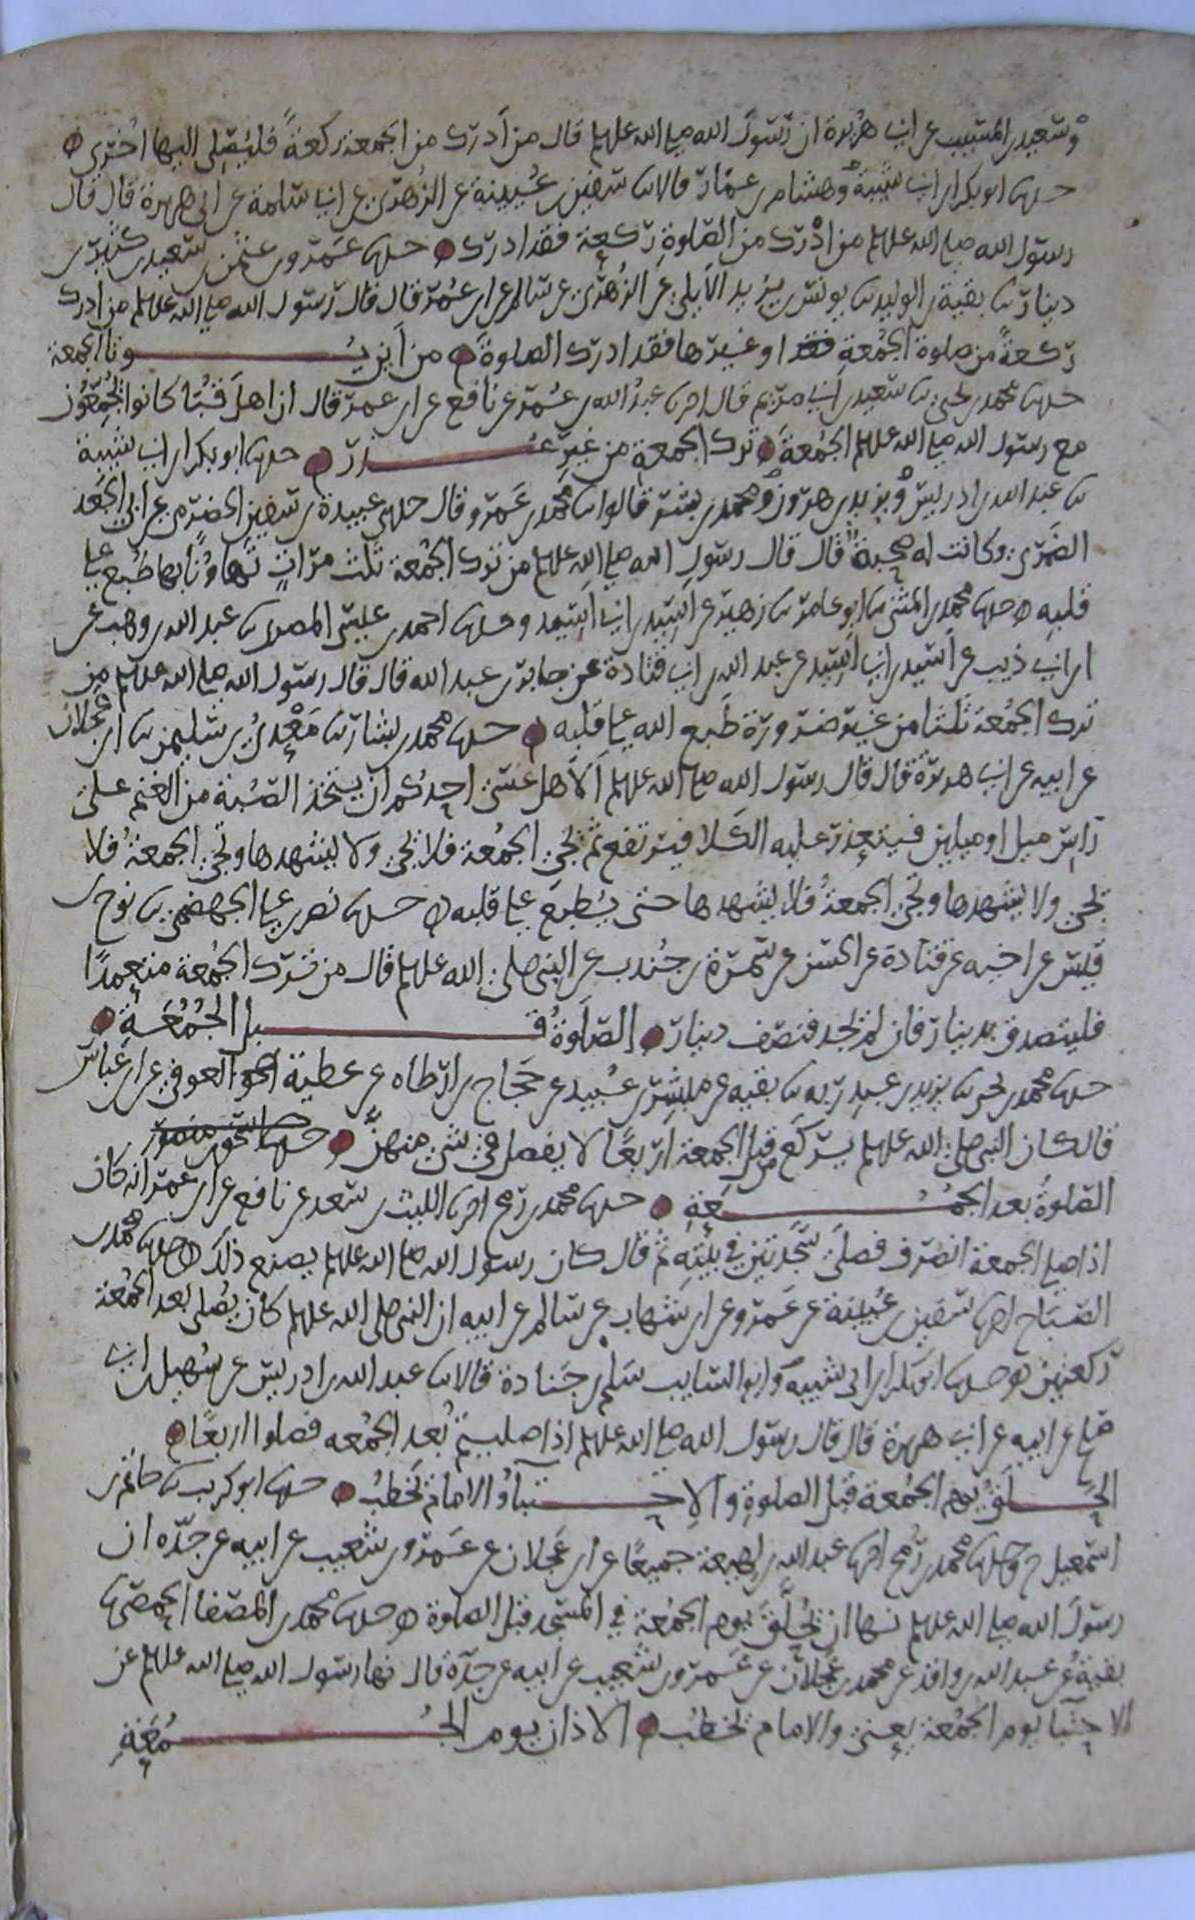 وسعيد بن المسيب عن ابي هريرة ان رسول الله صلى الله عليه وسلم قال من ادرك من الجمعة ركعةً فليُصَلي اليها اخرى
حدثنا ابو بكر ابن ابي شيبة وهشام بن عمار قالا ثنا سفين بن عيينة عن الزهري عن ابي سلمة عن ابي هريرة قال قال
رسول الله صلى الله عليه وسلم من ادرك من الصلوة ركعة فقد ادرك حدثنا عمرو بن عثمن بن سعيد بن كثير بن
دينار ثنا بقية بن الوليد ثنا يونس بن يزيد الايلي عن الزهري عن سالم عن ابن عمر قال قال رسول الله صلى الله عليه وسلم من ادرك
ركعةً من صلوة الجمعة او غيرها فقد ادرك الصلوة من اين يُوتا الجمعة
حدثنا محمد بن يحيى ثنا سعيد بن ابي مريم قال اخبرنا عبد الله بن عمر عن نافع عن ابن عمر قال ان اهل قُبا كانوا يُجمّعون
مع رسول الله صلى الله عليه وسلم الجمعة ترك الجمعة من غير عذر حدثنا ابو بكر ابن ابي شيبة
ثنا عبد الله بن ادريس ويزيد بن هرون ومحمد بن بشر قالوا ثنا محمد بن عمرو قال حدثني عبيدة بن سفين الحضرمي عن ابي الجعد
الضمري وكانت له صحبة قال قال رسول الله صلى الله عليه وسلم من ترك الجمعة ثلث مرات تهاونًا بها طُبع على
قلبه حدثنا محمد بن المثنى ثنا ابو عامر ثنا زهير عن اسيد بن ابي اسيد وحدثنا احمد بن عيسى المصري ثنا عبد الله بن وهب عن
ابن ابي ذيب عن اسيد بن ابي اسيد عن عبد الله بن ابي قتادة عن جابر بن عبد الله قال قال رسول الله صلى الله عليه وسلم من
ترك الجمعة ثلثا من غير ضرورة طبع الله على قلبه حدثنا محمد بن بشار ثنا مَعْدي بن سليمن ثنا ابن عجلان
عن ابيه عن ابي هريرة قال قال رسول الله صلى الله عليه وسلم ألا هل عسى احدكم ان يتخذ الصُبة من الغنم على
راس ميل او ميلين فيتعذر عليه الكلا فيرتفع ثم تجي الجمعة فلا يجي ولا يشهدها وتجي الجمعة فلا
يجي ولا يشهدها وتجي الجمعة فلا يشهدها حتى يُطبع على قلبه حدثنا نصر بن علي الجهضمي ثنا نوح بن
قيس عن اخيه عن قتادة عن الحسن عن سمرة بن جندب عن النبي صلى الله عليه وسلم قال من ترك الجمعة متعمدًا
فليتصدق بدينار فان لم يجد فنصف دينار الصلوة قبل الجمعة
حدثنا محمد بن يحيى ثنا يزيد بن عبد ربه ثنا بقيه عن مبشر بن عبيد عن حجاج بن ارطاه عن عطية العوفي عن ابن عباس
قال كان النبي صلى الله عليه وسلم يركع من قبل الجمعة اربعًا لا يفصل في شي منهن
الصلوة بعد الجمعة حدثنا محمد بن رمح اخبرنا الليث بن سعد عن نافع عن ابن عمر انه كان
اذا صلى الجمعة انصرف فصلى سجدتين في بيته ثم قال كان رسول الله صلى الله عليه وسلم يصنع ذلك حدثنا محمد بن
الصباح اخبرنا سفين بن عيينة عن عمرو عن ابن شهاب عن سالم عن ابيه ان النبي صلى الله عليه وسلم كان يصلى بعد الجمعة
ركعتين حدثنا ابو بكر ابن ابي شيبه وابو السايب سلم بن جنادة قالا ثنا عبد الله بن ادريس عن سهيل بن ابي
صالح عن ابيه عن ابي هريرة قال قال رسول الله صلى الله عليه وسلم اذا صليتم بعد الجمعه فصلوا اربعًا
الحِلَق يوم الجمعة قبل الصلوة والاحتباء والامام يخطب حدثنا ابو كريب ثنا حاتم بن
اسمعيل ح وحدثنا محمد بن رمح اخبرنا عبد الله بن لهيعة جميعًا عن ابن عجلان عن عمرو بن شعيب عن ابيه عن جدّه ان
رسول الله صلى الله عليه وسلم نها ان يُحلَّق يوم الجمعة في المسجد قبل الصلوة حدثنا محمد بن المصفا الحمصي ثنا
بقيةُ عن عبد الله بن واقد عن محمد بن عجلان عن عمرو بن شعيب عن ابيه عن جدّه قال نها رسول الله صلى الله عليه وسلم عن
الاحتبا يوم الجمعة يعني والامام يخطب الاذان يوم الجمعة